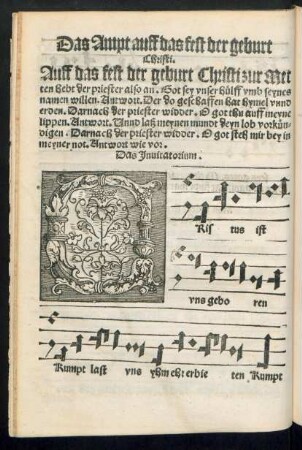 Das Ampt auff das fest der geburt
Christi.
Auff das fest der geburt Christi zur Met
ten hebt der priester also an. Got sey vnser hülff vmb seynes
namen willen. Antwort. Der do geschaffen hat hymel vnnd
erden. Darnach der priester widder. O got thu auff meyne
lippen. Antwort. Vnnd laß meynen mundt deyn lob vorkün⸗
digen. Darnach der priester widder. O got steh mir bey in
meyner not. Antwort wie vor.
Das Inuitatorium.
C Ris tus ist
vns gebo ren
Kumpt last vns yhm eherbie ten Kumpt